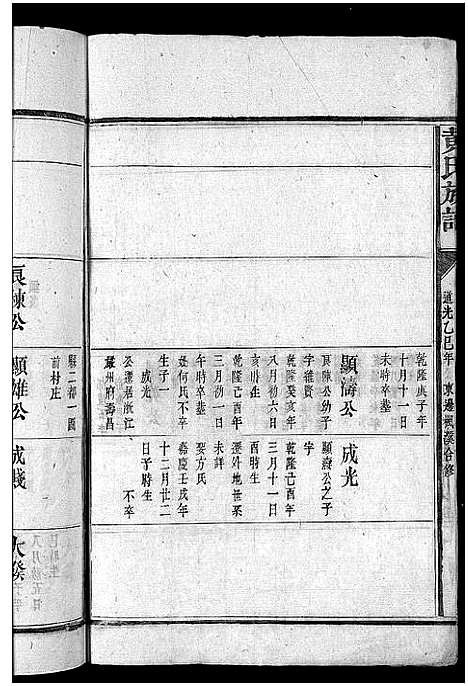 黄氏族譜
道光乙巳年
東邊楓溪合修
乾隆庚子年
十月十一日
未時卒墓
顯濤公
良陳公幼子
字雅賢
乾隆癸亥年
八月初六日
亥时生
乾隆己酉年
三月初一日
午時卒墓
娶何氏不卒
生子一
成光
公遷居浙江
嚴州府壽昌
成光
顯濤公之子
字
乾隆己酉年
三月十一日
酉時生
歿外地世系
未詳
娶方氏
嘉慶壬戌年
十二月廿二
日子時生
不卒
縣二都一圖
前村庄
良棟公
顯雄公
成錢
大發